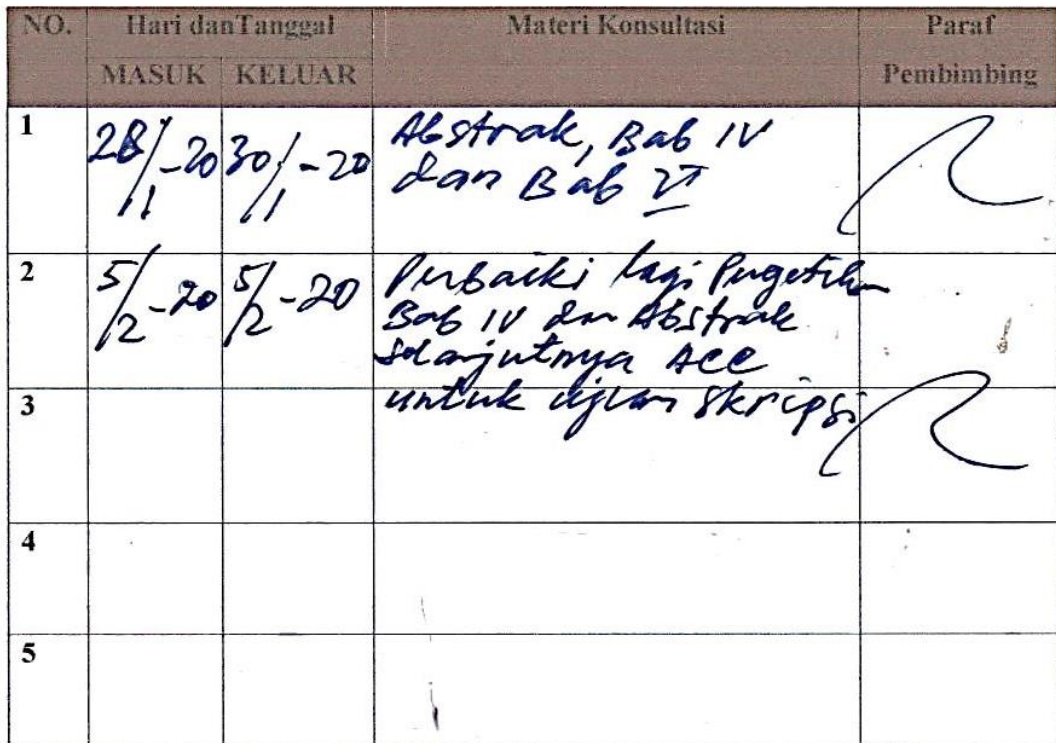 NO. Hari danTanggal Materi Konsultasi Paraf
MASUK KELUAR Pembimbing
1 28/1-20 30/1-20 Abstrak, Bab IV
dan Bab V
2 5/2-20 5/2-20 Perbaiki lagi Pengetikan
Bab IV dan Abstrak
selanjutnya ACC
3 untuk ujian skripsi
4
5